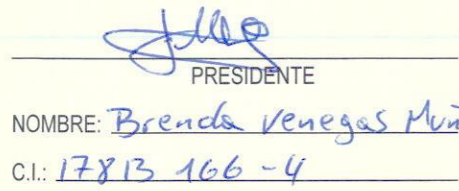 PRESIDENTE
NOMBRE: Brenda Venegas Muñ
C.I.: 17813 166-4